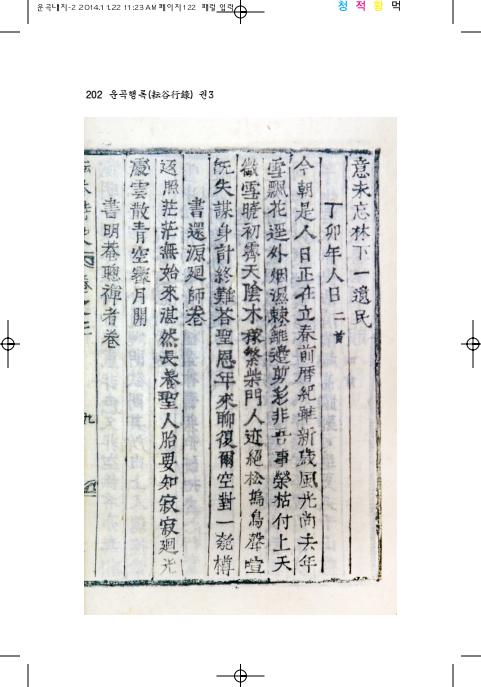 운곡내지-2 2014.11.22 11:23 AM 페이지122 패럴 업력
청 적 황 먹
202 운곡행록(耘谷行錄) 권3
意未忘林下一遺民
丁卯年人日 二首
今朝是人日正在立春前曆紀雖新歲風光尙去年
雪飄花逕外烟濕棘籬邊剪彩非吾事榮枯付上天
微雪曉初霽天陰木稼繁柴門人迹絕松塢鳥聲喧
旣失謀身計終難答聖恩年來聊復爾空對一匏樽
書還源廻師卷
返照茫茫無始來湛然長養聖人胎要知寂寂廻光
處雲散靑空霽月開
書明菴聰禪者卷
九